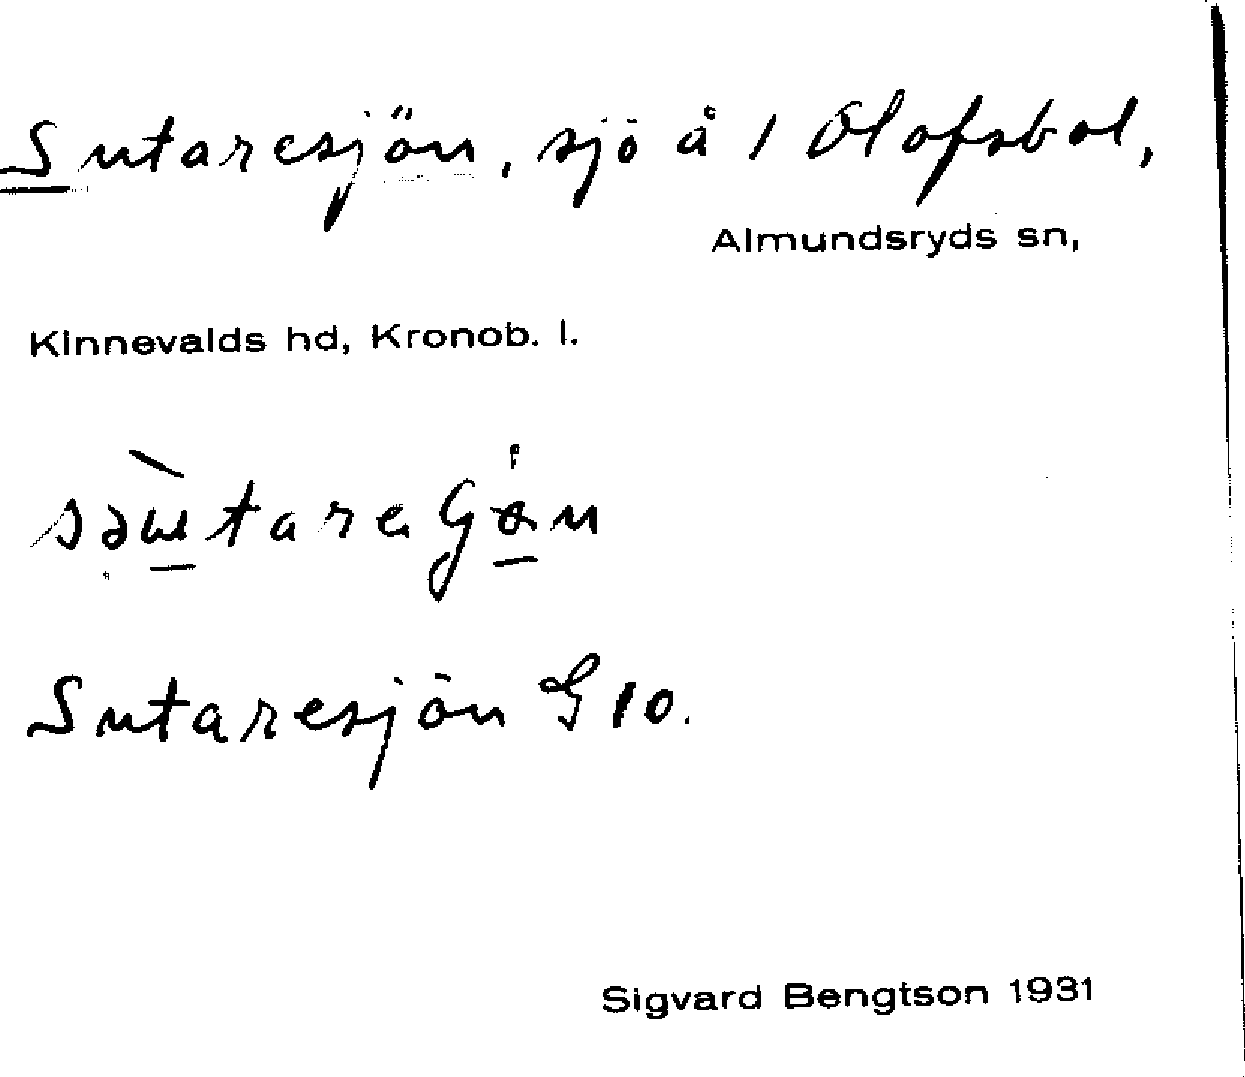 Sutaresjön, sjö å 1 Olofsbol,
Almundsryds sn,
Kinnevalds hd, Kronob. l.
Sutaresjön G 10.
Sigvard Bengtson 1931